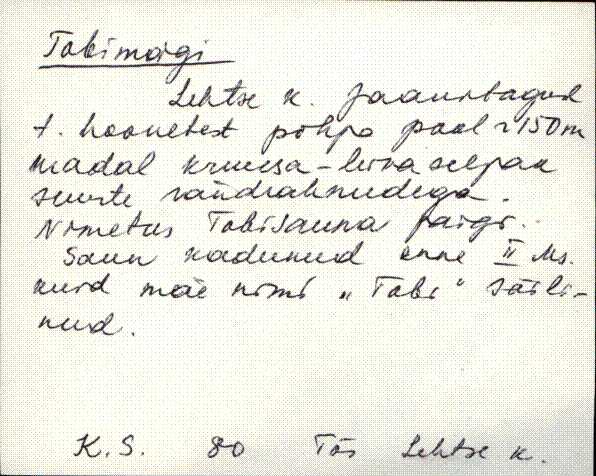 Tobimägi
Lehtse k. Jaanitaguse
t. hoonetest põhja pool ~150 m
madal kruusa-liiva seljak
suurte rändrahnudega.
Nimetus Tobisauna järgi.
Saun kadunud enne II Ms.
kuid mäe nimi „Tobi" säili-
nud.
K.S. 80 Tõs Lehtse k.